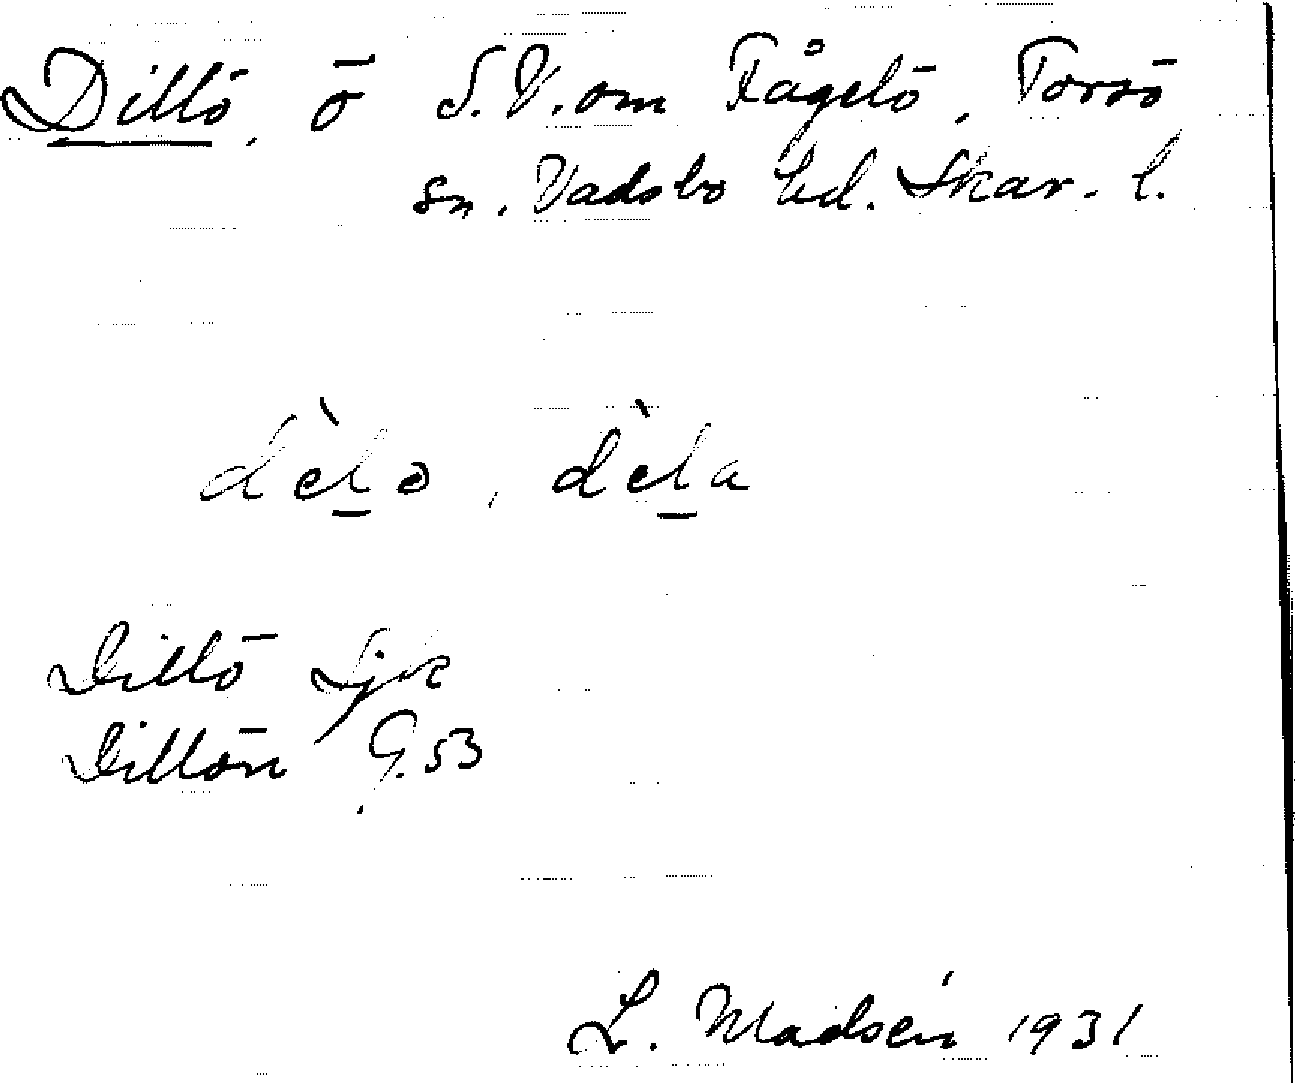 Dillö, ö S.V. om Fågelö, Torsö
sn. Vadsbo hd. Skar. l.
dèlə, dèla
Dillö Sjk
Dillön G. 53
L. Madsén 1931